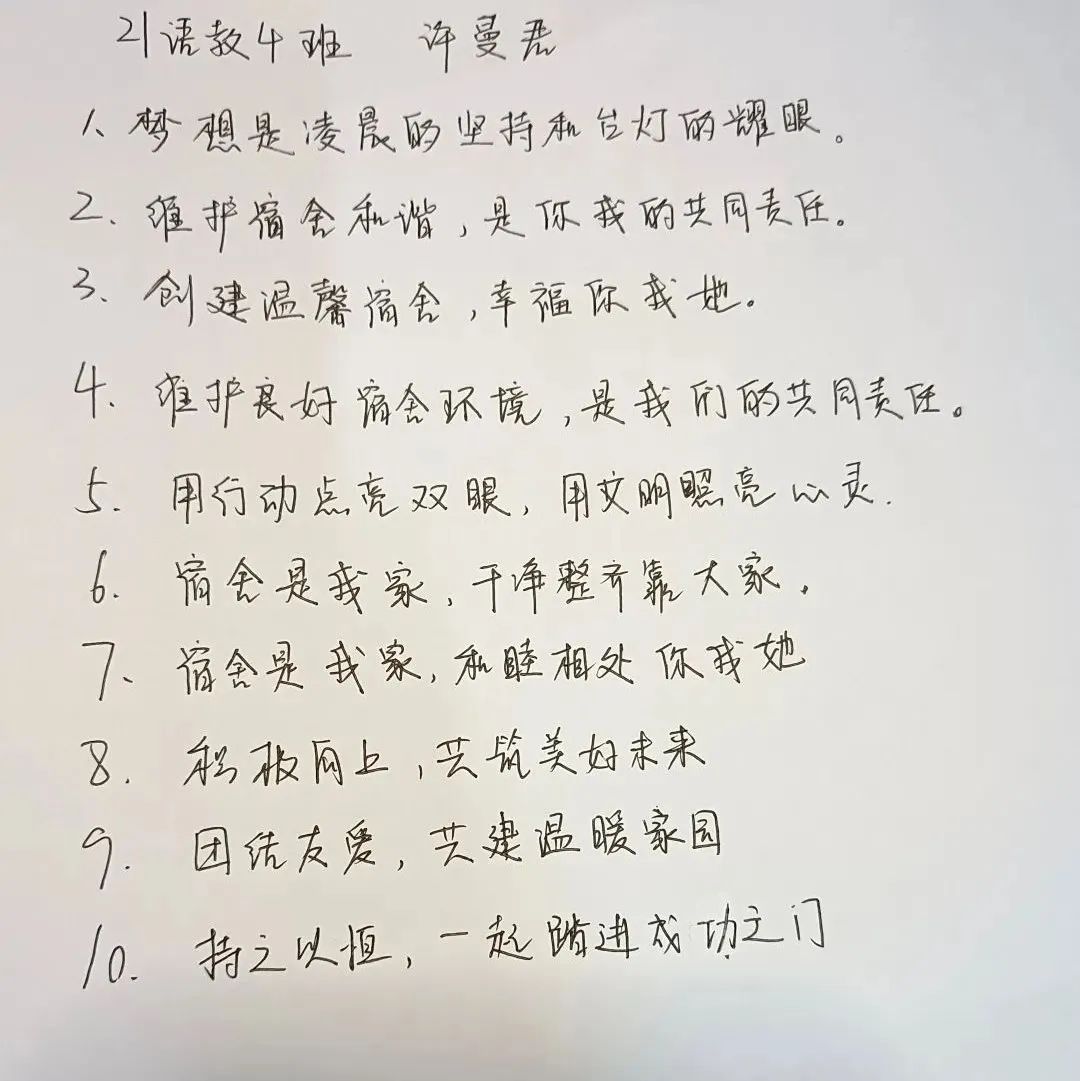 21语教4班 许曼君
1、梦想是凌晨的坚持和台灯的耀眼。
2、维护宿舍和谐,是你我的共同责任。
3、创建温馨宿舍,幸福你我她。
4、维护良好宿舍环境,是我们的共同责任。
5. 用行动点亮双眼,用文明照亮心灵.
6. 宿舍是我家,干净整齐靠大家.
7、宿舍是我家,和睦相处你我她
8. 积极向上,共筑美好未来
9. 团结友爱,共建温暖家园
10. 持之以恒,一起踏进成功之门